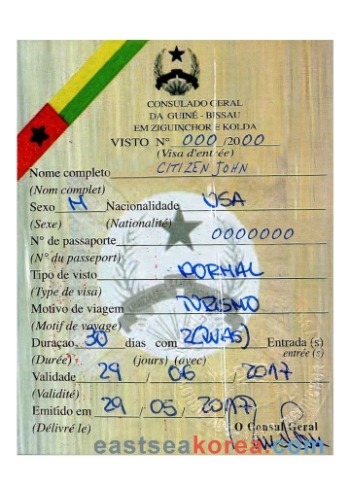 CONSULADO GERAL
DA GUINÉ - BISSAU
EM ZIGUINCHOR E KOLDA
VISTO Nº 000 /2000
(Visa d'entrée)
Nome completo CITIZEN JOHN
(Nom complet)
Sexo M Nacionalidade USA
(Sexe) (Nationalité)
Nº de passaporte 0000000
(Nº du passeport)
Tipo de visto NORMAL
(Type de visa)
Motivo de viagem TURISMO
(Motif de voyage)
Duraçao, 30 dias com 2(DUAS) Entrada (s)
(Durée) (jours) (avec) entrée (s)
Validade 29 / 06 / 2017
(Validité)
Emitido em 29 / 05 / 2017
(Délivré le) O Consul Geral
eastseakorea.com